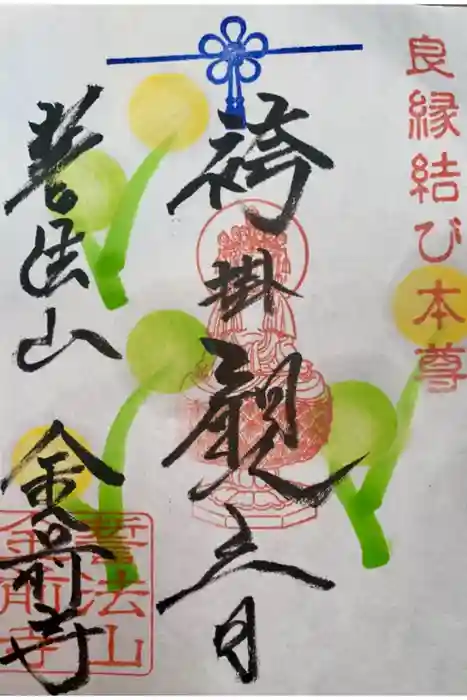 良縁結び本尊
袴掛観音
誓法山 金前寺
誓法山
金前寺